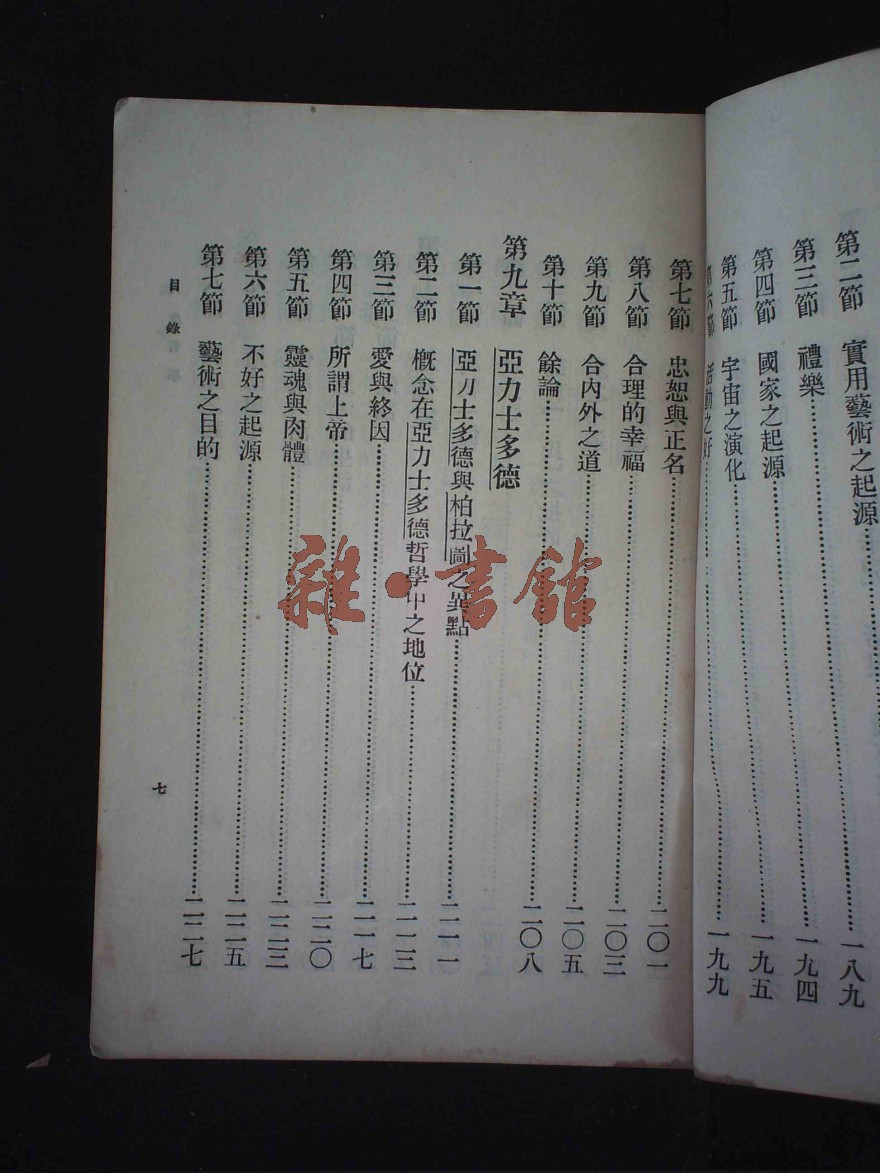 第二節 實用藝術之起源 一八九
第三節 禮樂 一九四
第四節 國家之起源 一九五
第五節 宇宙之演化 一九九
第六節 活動之好
第七節 忠恕與正名 二〇一
第八節 合理的幸福 二〇三
第九節 合內外之道 二〇五
第十節 餘論 二〇八
第九章 亞力士多德
第一節 亞力士多德與柏拉圖之異點 二一一
第二節 概念在亞力士多德哲學中之地位 二一三
第三節 愛與終因 二一七
第四節 所謂上帝 二二〇
第五節 靈魂與肉體 二二三
第六節 不好之起源 二二五
第七節 藝術之目的 二二七
目錄
七
雜·書館